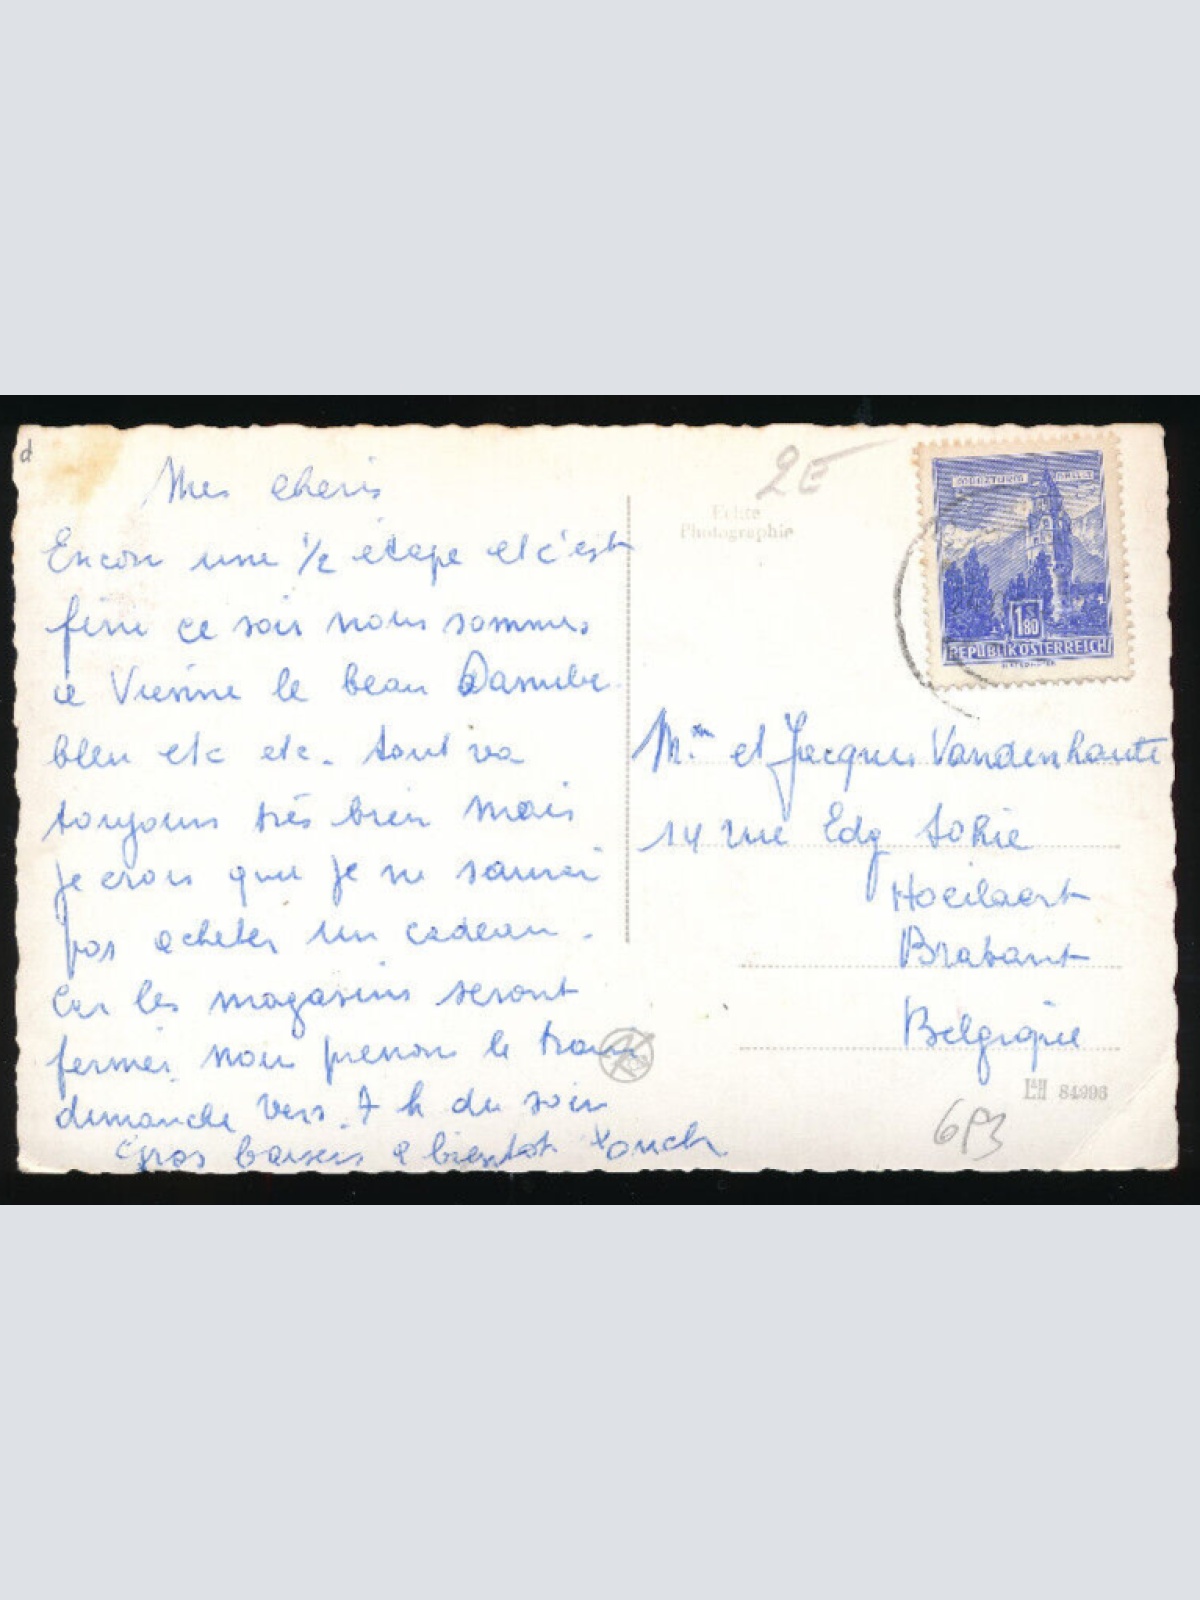 d
Mes cheris
Encore une 1/2 étape et c'est
fini ce soir nous sommes
a Vienne le beau Danube
bleu etc etc. tout va
toujours très bien mais
je crois que je ne saurai
pas acheter un cadeau.
Car les magasins seront
fermés nous prenons le train
dimanche vers 7 h du soir
Gros baisers a bientot
2E
Echte
Photographie
MÜNZTURM HALL
1.80
REPUBLIK ÖSTERREICH
Mm et Jacques Vandenhaute
14 rue Edg Sohie
Hoeilaert
Brabant
Belgique
84996
6P3